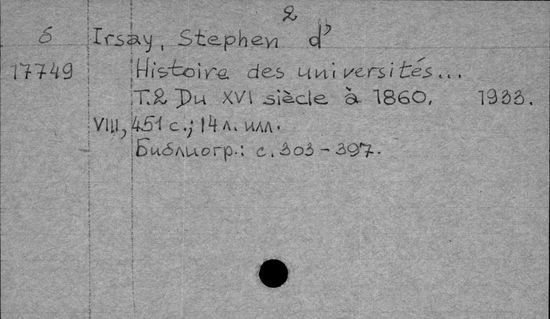 2
б Irsay, Stephen d'
17749 Histoire des universités...
T.2 Du XVI siècle à 1860. 1933.
VIII, 451 с.; 14 л. илл.
Библиогр.: с. 303-397.